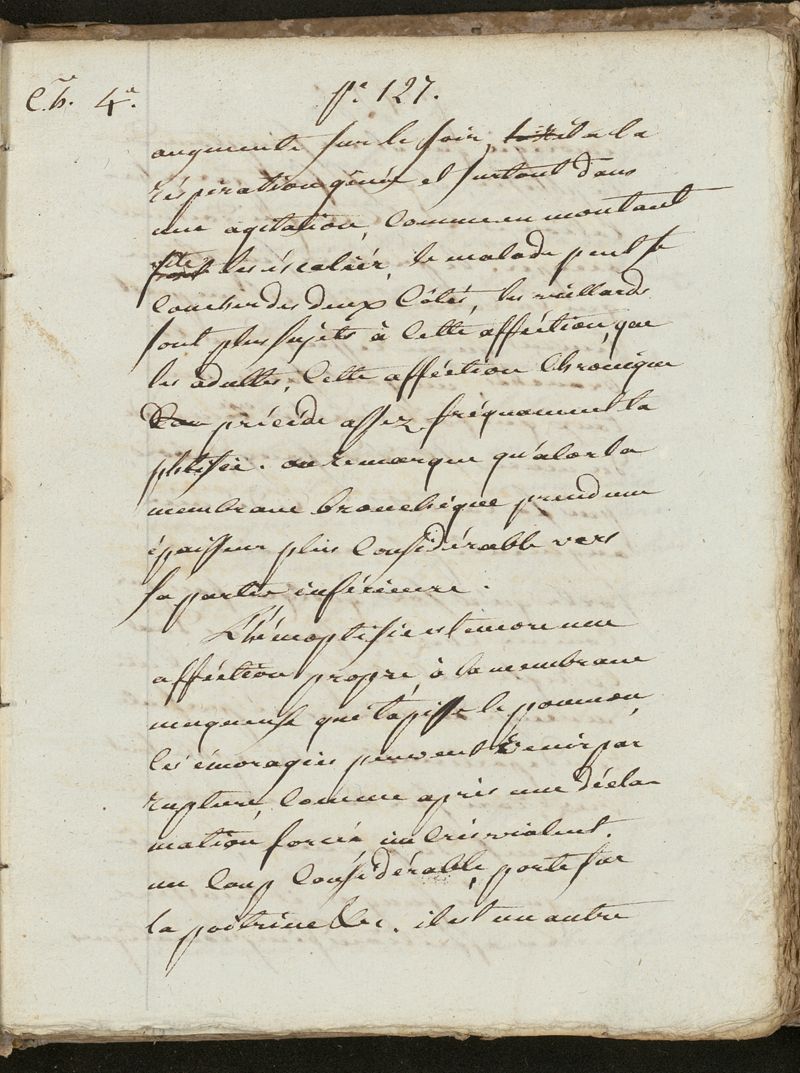 Ch. 4e. pe. 127.
augmente sur le soir, et a la
réspiration génée et surtout dans
une agitation, comme en montant
vite les éscaliér, le malade peut se
coucher des deux côtés, les vieillards
sont plus sujets à cette afféction, que
les adultes, cette afféction chronique
précéde assez fréquamment la
phtisie. on remarque qu'alors la
membrane bronchique prend une
épaisseur plus considérable vers
sa partie inférieure.
L'hémoptisie est encore une
afféction propre à la membrane
muqueuse qui tapisse le poumon,
les émoragies peuvent venir par
rupture, comme après une décla
mation, forcée, un cris violent,
un coup considérable, porté sur
la poitrine &c. il est un autre